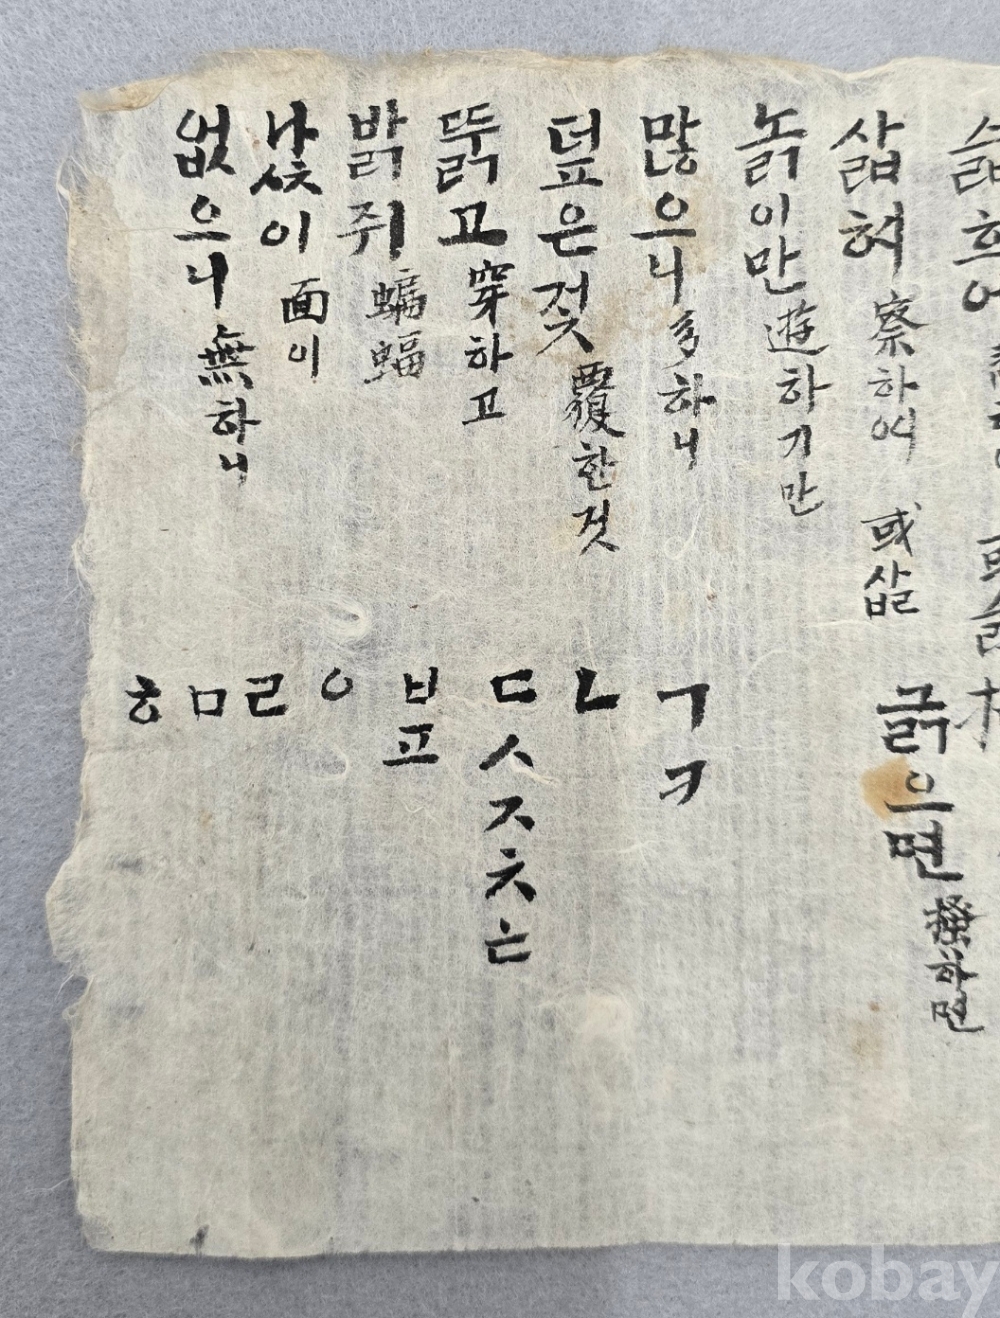 삷혀 察하여 或삷
긁으면 搔하면
놁이만 遊하기만
많으니 多하니
덮은겇 覆한것
뚥고 穿하고
밝쥐 蝙蝠
이 面이
없으니 無하니
ㄱㅋ
ㄴ
ㄷㅅㅈㅊㅌ
ㅂㅍ
ㅇ
ㄹ
ㅁ
ㅎ
kobay